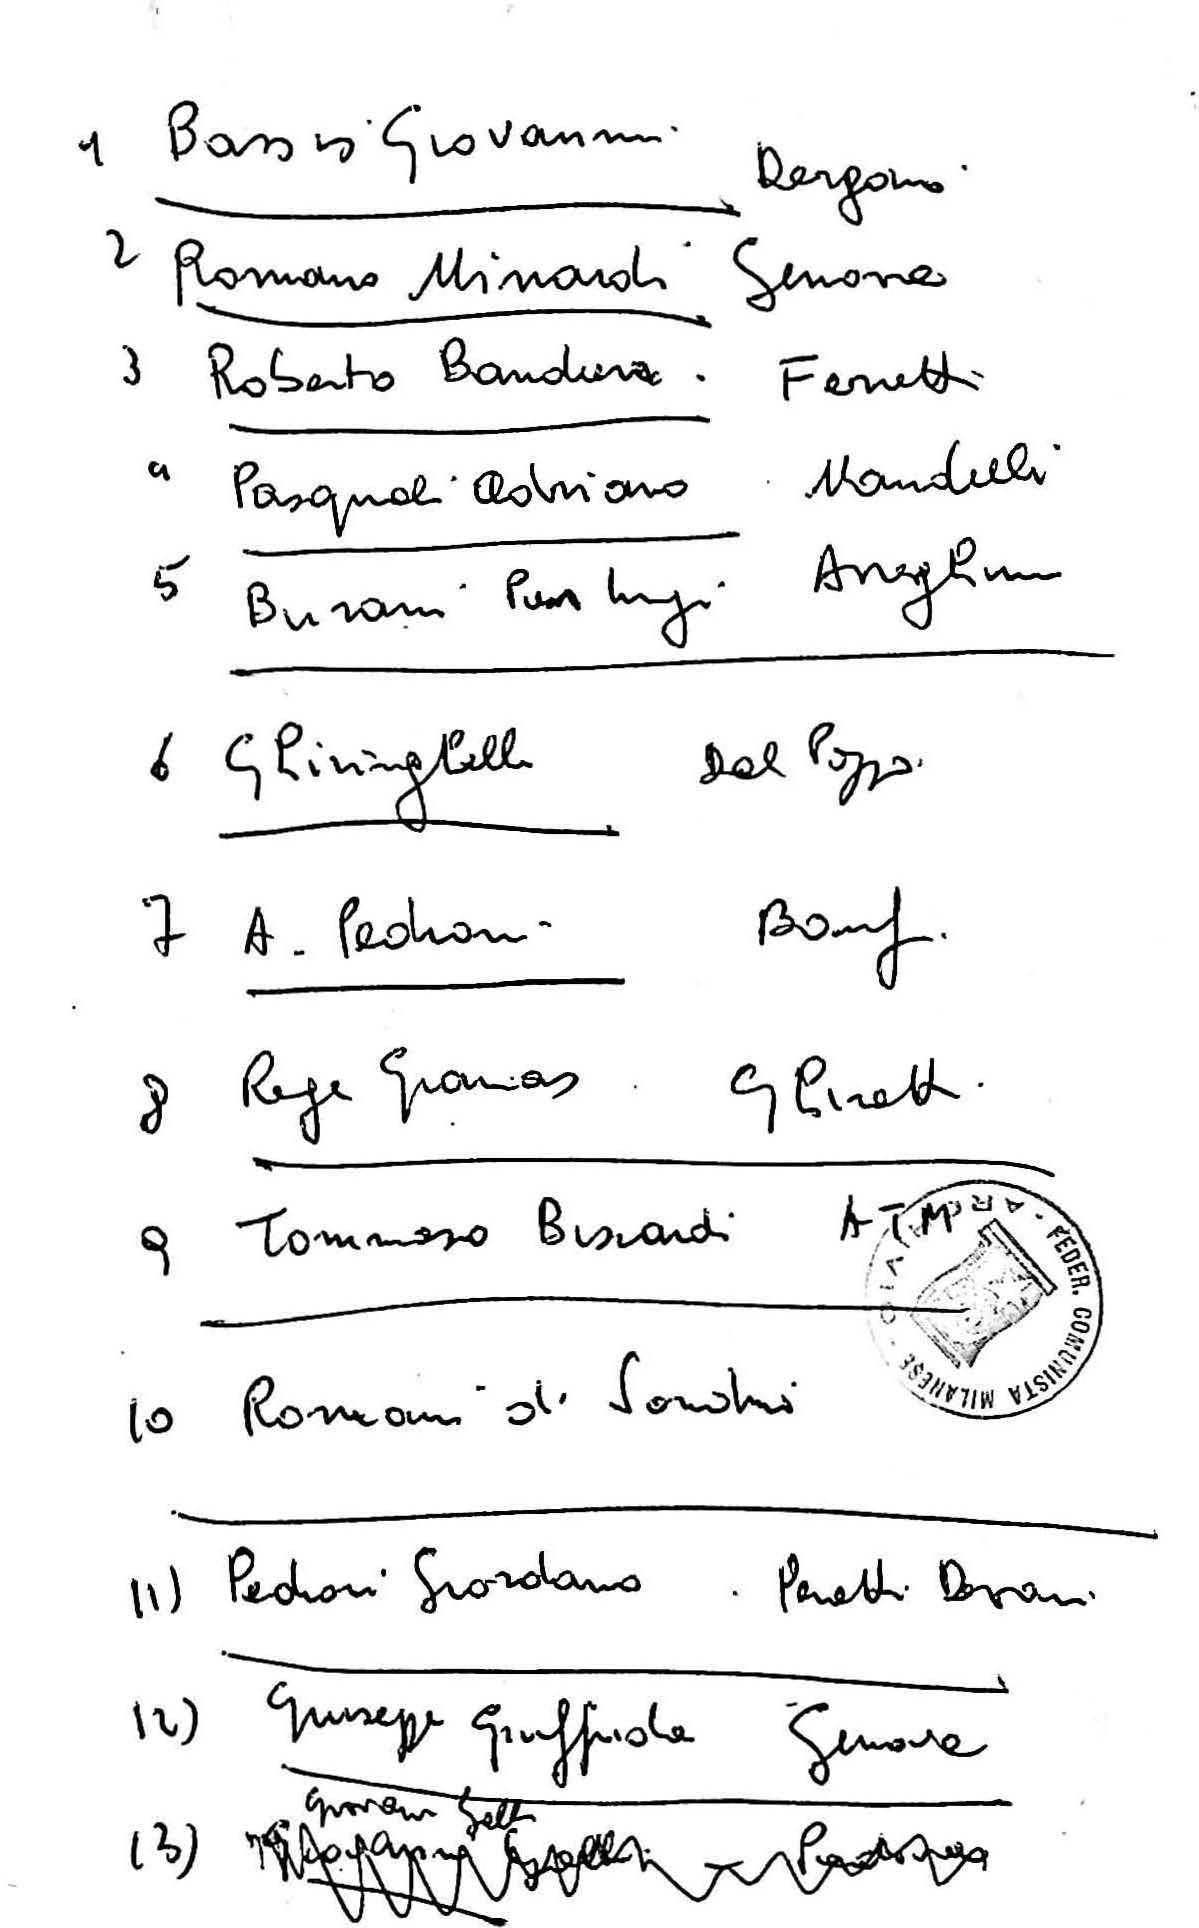 1 Bassis Giovanni Bergamo
2 Romano Minardi Genova
3 Roberto Bandiera. Ferretti
4 Pasquali Adriano Mandelli
5 Burani Pier Luigi
6 Ghiringhelli Dal Pozzo.
7 A. Pedroni Bonf.
8 Rege Gramas Ghirett.
9 Tommaso Biscardi ATM
ARCHIVIO · FEDER. COMUNISTA MILANESE ·
10 Romani di Sondrio
11) Pedroni Giordano. Peretti
12) Giuseppe Giuffrida Genova
Giovanni Galli
13) Padova